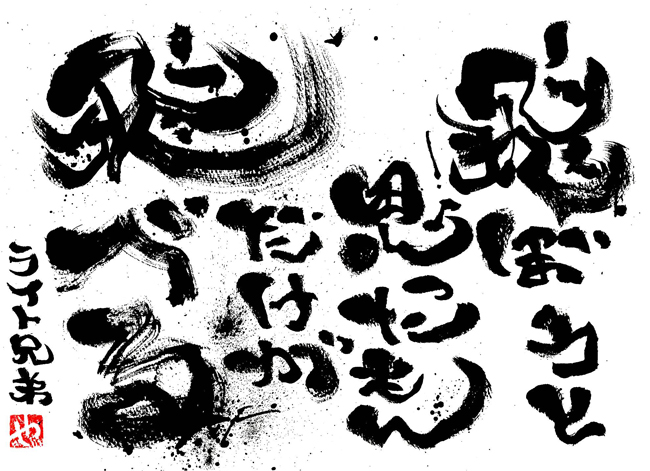 飛ぼうと
思ったもん
だけが
飛べる
ライト兄弟